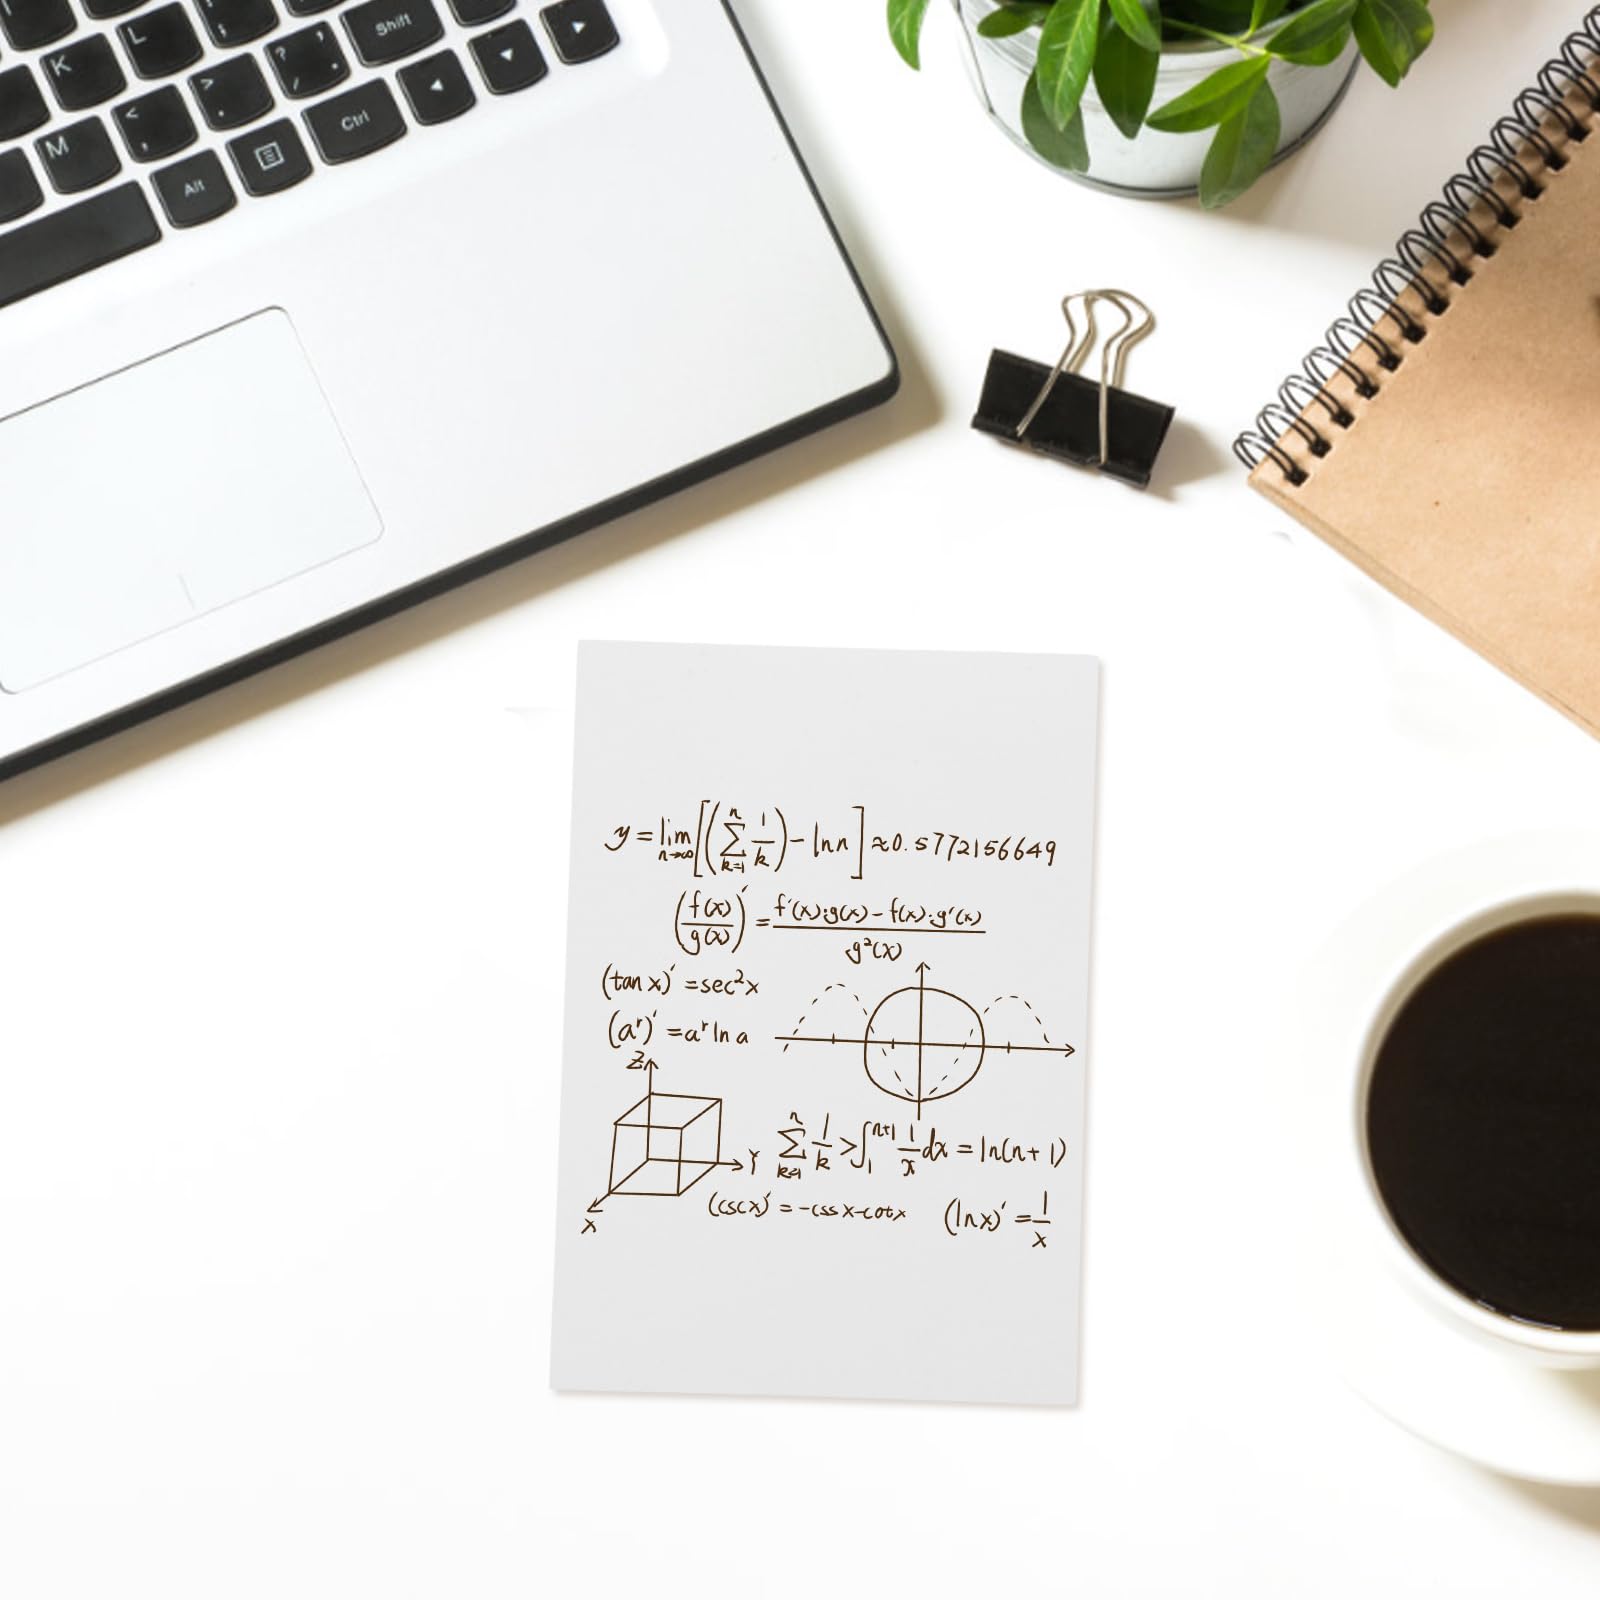 Shift
K L : ;
? ' / .
M < , > .
Alt Ctrl
y = lim n→∞ [(∑ k=1 n 1/k) - ln n] ≈ 0.5772156649
(f(x)/g(x))' = f'(x)·g(x) - f(x)·g'(x) / g²(x)
(tan x)' = sec²x
(aʳ)' = aʳ ln a
Z
Y
X
∑ k=1 n 1/k > ∫ 1 n+1 1/x dx = ln(n+1)
(csc x)' = -css x-cot x
(ln x)' = 1/x